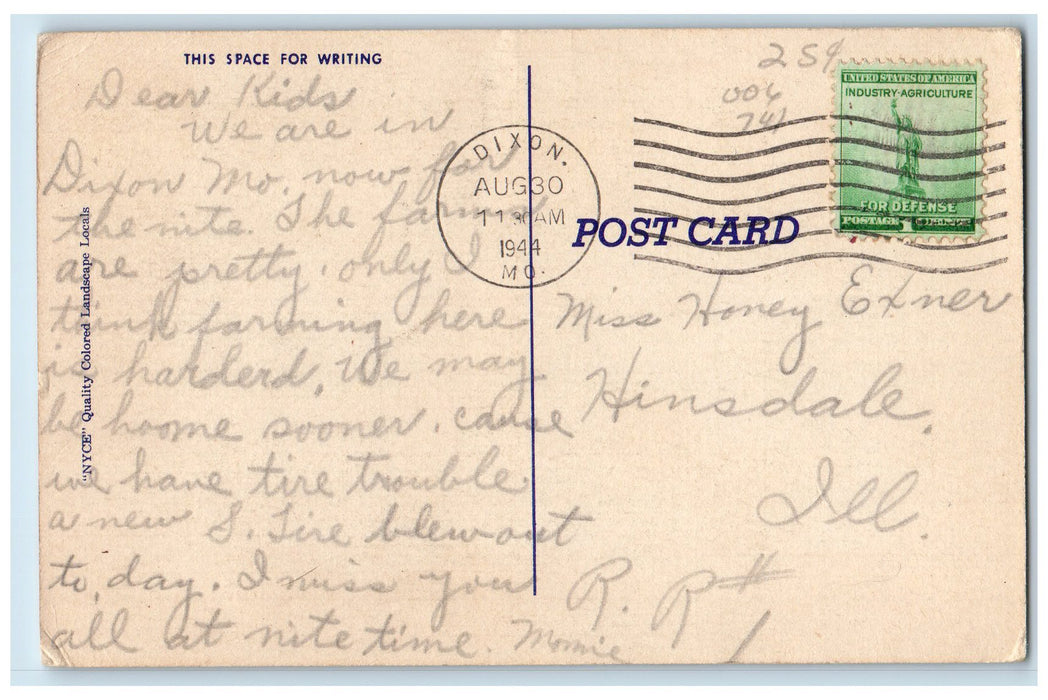 THIS SPACE FOR WRITING
Dear Kids
We are in
Dixon Mo. now for
the nite. The farms
are pretty. only I
think farming here
is harderd. We may
be hoome sooner. cause
we have tire trouble
a new S. Tire blew out
to, day. I miss you
all at nite time. Momie
"NYCE" Quality Colored Landscape Locals
25¢
006
741
DIXON.
AUG 30
11 30 AM
1944
MO.
UNITED STATES OF AMERICA
INDUSTRY·AGRICULTURE
FOR DEFENSE
POSTAGE 1
POST CARD
Miss Honey Exner
Hinsdale.
Ill.
R. R #
1